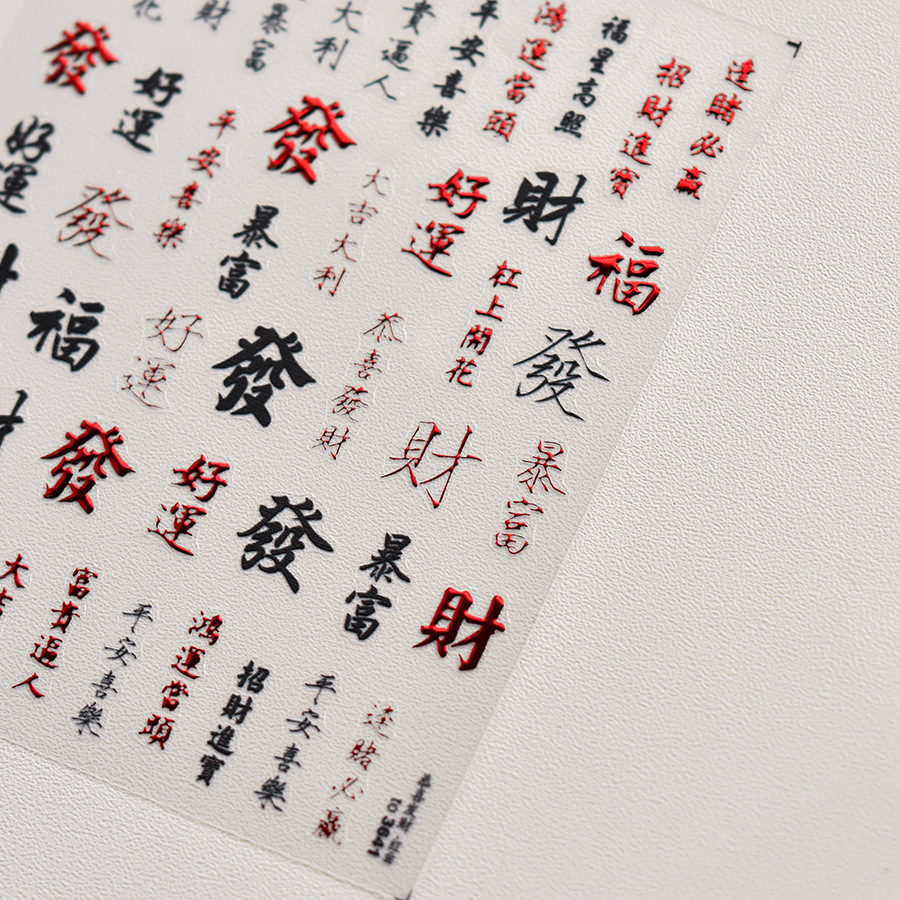 逢賭必贏
招財進寶
福星高照
鴻運當頭
平安喜樂
貴逼人
大利
暴富
財
花
發
好運
平安喜樂
發
大吉大利
好運
財
福
好運
發
暴富
恭喜發財
杠上開花
發
福
好運
發
財
暴富
發
好運
發
暴富
財
大吉
富貴逼人
平安喜樂
鴻運當頭
招財進寶
平安喜樂
逢賭必贏
to 3641